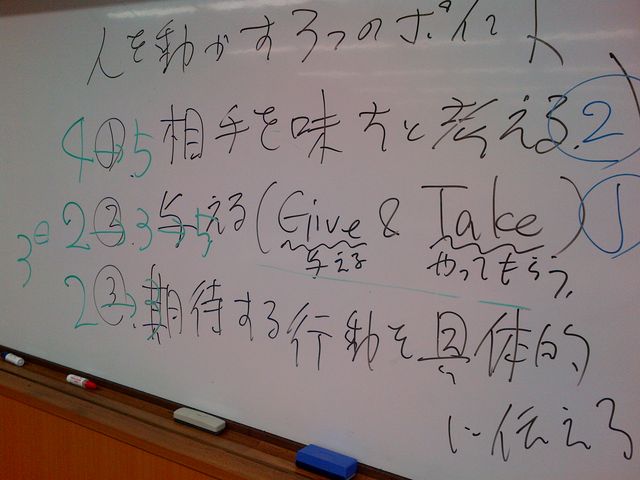 人を動かす3つのポイント
4→5 ① 相手を味方と考える. ②
3 2→3 ② 与える(Give & Take) →5 ①
与える やってもらう
2→3 ③ 期待する行動を具体的
に伝える